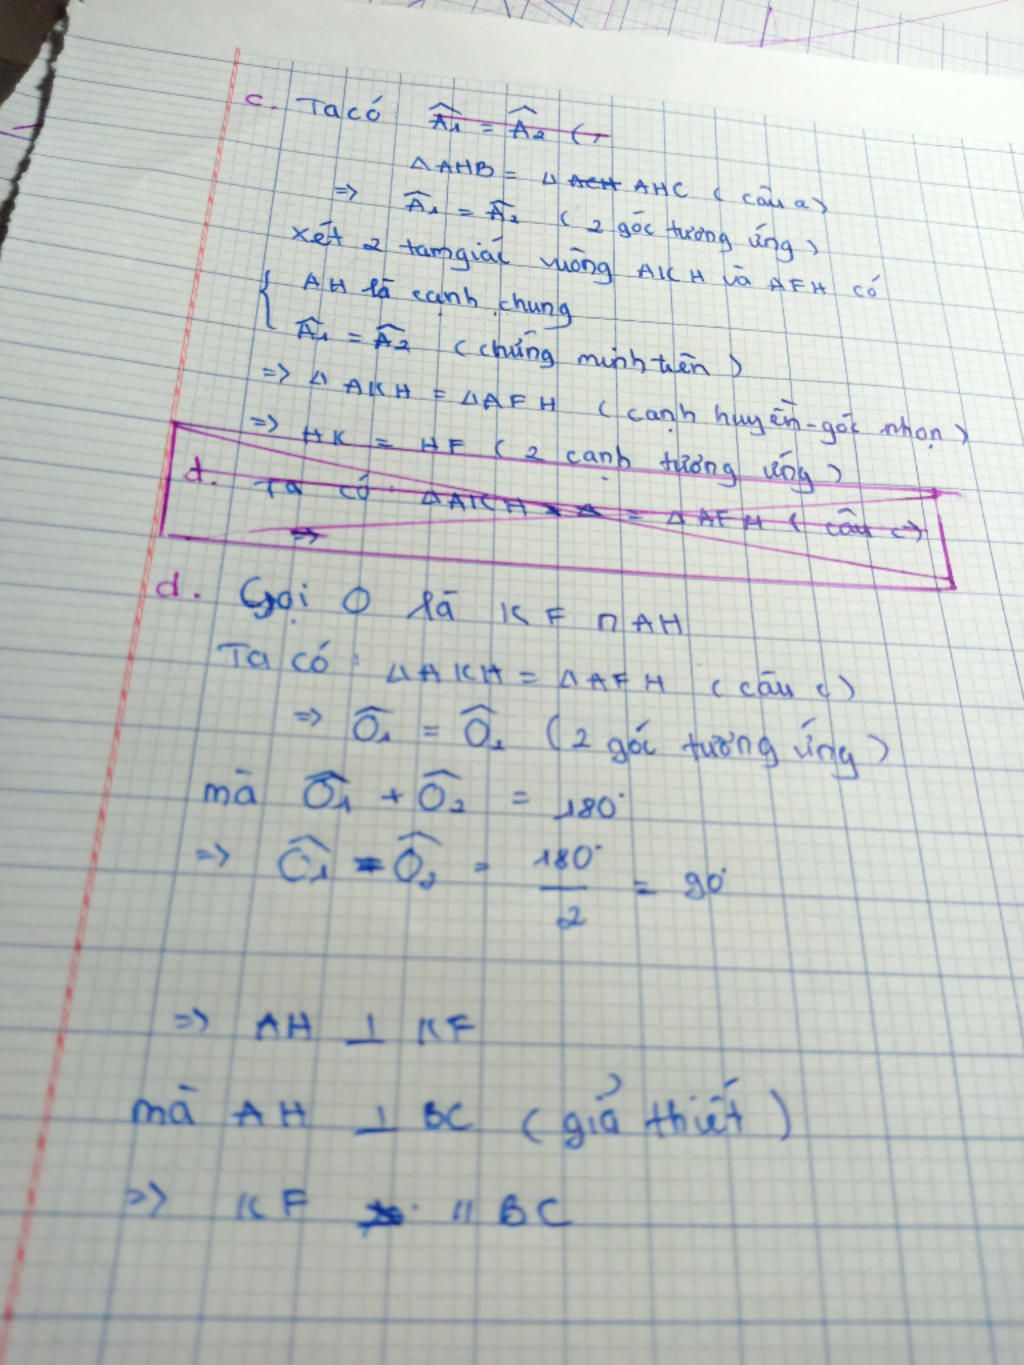 c. Ta có Â1 = Â2 (
ΔAHB = Δ ACH AHC ( câu a)
=> Â1 = Â2 ( 2 góc tương ứng )
xét 2 tam giác vuông AKH và AFH có
{ AH là cạnh chung
Â1 = Â2 ( chứng minh trên )
=> Δ AKH = ΔAFH ( cạnh huyền - góc nhọn )
=> HK = HF ( 2 cạnh tương ứng )
d. Ta có: ΔAKH = ΔAFH ( câu c)
=>
d. Gọi O là KF ∩ AH
Ta có: ΔAKH = ΔAFH ( câu c)
=> Ô1 = Ô2 ( 2 góc tương ứng )
mà Ô1 + Ô2 = 180°
=> Ô1 = Ô2 = 180°/2 = 90°
=> AH ⊥ KF
mà AH ⊥ BC ( giả thiết )
=> KF // BC